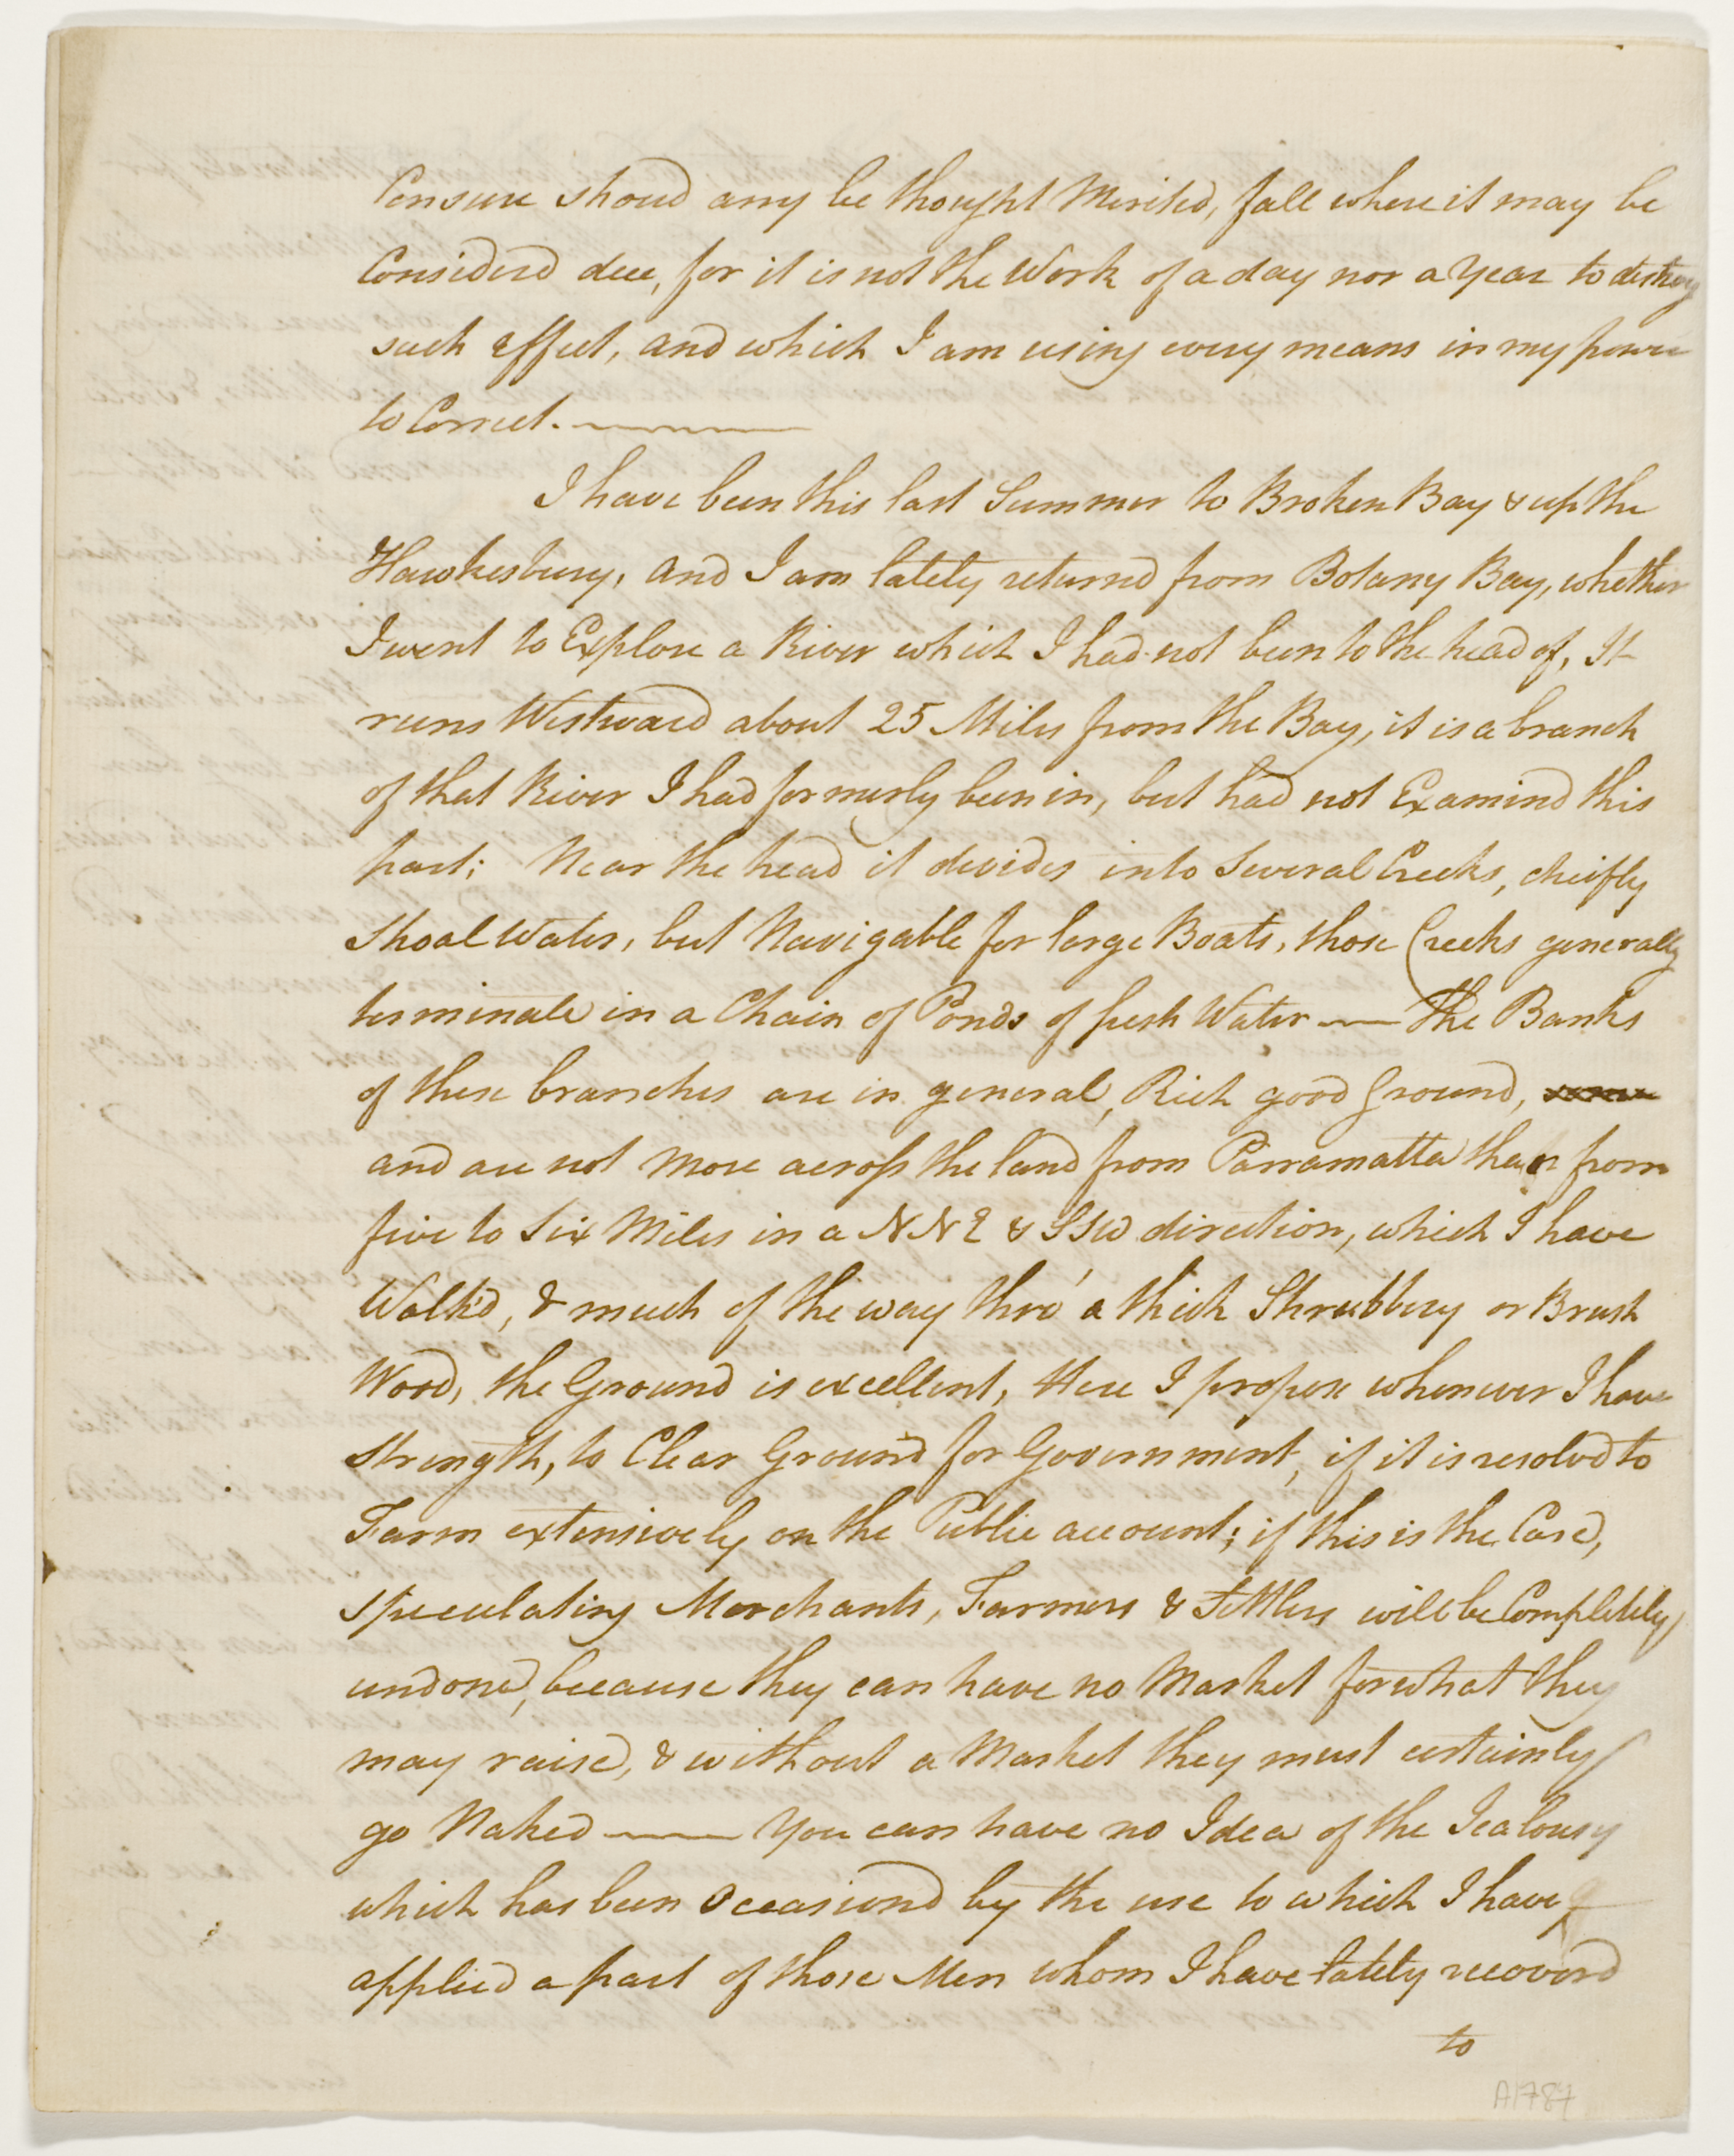 Censure shoud any be thought Merited, fall where it may be
Considerd due, for it is not the Work of a day nor a Year to destroy
such effect, and which I am using every means in my power
to Correct.
I have been this last Summer to Broken Bay & up the
Hawkesbury, and I am lately returnd from Botany Bay, whether
I went to Explore a River which I had not been to the head of, It
runs Westward about 25 Miles from the Bay, it is a branch
of that River I had formerly been in, but had not Examind this
part; Near the head it devides into Several Creeks, cheifly
Shoal Water, but Navigable for large Boats, those Creeks generally
terminate in a Chain of Ponds of fresh Water — The Banks
of these branches are in general, Rich good Ground,
and are not More across the land from Parramatta than from
five to Six Miles in a NNE & SSW direction, which I have
Walk'd, & much of the way thro' a thick Shrubbery or Brush
Wood, the Ground is excellent, Here I propose whenever I have
Strength, to Clear Ground for Government, if it is resolvd to
Farm extensively on the Public account; if this is the Case,
Speculating Merchants, Farmers & Settlers will be Completely
undone, because they can have no Market for what they
may raise, & without a Market they must certainly
go Naked — You can have no Idea of the Jealousy
which has been Occasiond by the use to which I have
applied a part of those Men whom I have lately recoverd
to
A1787